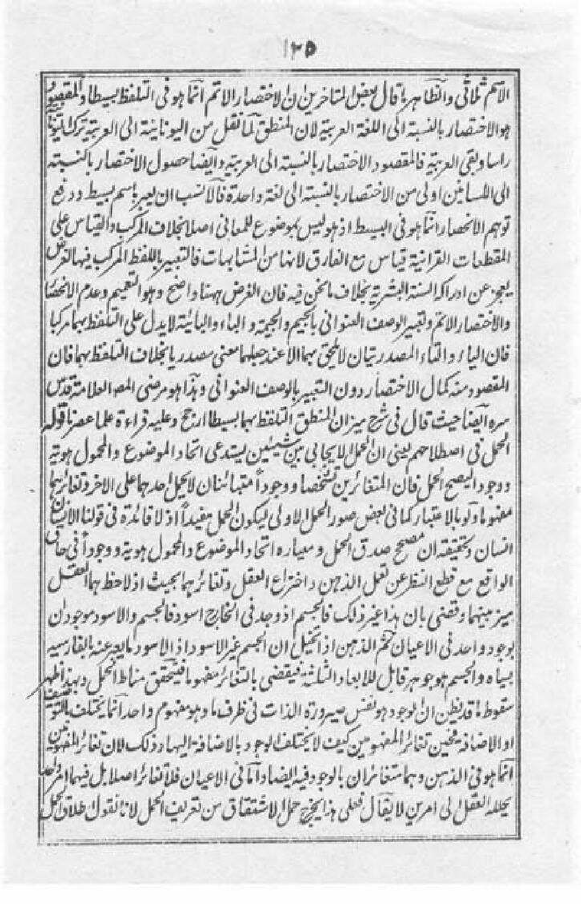 ١٢٥
الاسم ثلاثي والظاهر ما قال بعض المتاخرين ان الاختصار الاتم انما هو في التلفظ بسيطا والمقصود
هو الاختصار بالنسبة الى اللغة العربية لان المنطق لما نقل من اليونانية الى العربية ترك يونا
راسا وبقى العربية فالمقصود الاختصار بالنسبة الى العربية وايضا حصول الاختصار بالنسبة
الى اللسانين اولى من الاختصار بالنسبة الى لغة واحدة فالانسب ان يعبر باسم بسيط ودفع
توهم الانحصار انما هو في البسيط اذ هو ليس بموضوع للمعاني اصلا بخلاف المركب والقياس على
المقطعات القرانية قياس مع الفارق لانها من المتشابهات فالتعبير باللفظ المركب فيها لغرض
يعجز عن ادراكه السنة البشرية بخلاف ما نحن فيه فان الغرض ههنا واضح وهو التعميم وعدم الانحصا
والاختصار الاتم وتعبير الوصف العنواني بالجيم والجيمية والباء والبائية لا يدل على التلفظ بهما مركبا
فان الياء والتاء المصدريتان لا يلحق بهما الا عند جعلهما معنى مصدريا بخلاف التلفظ بهما فان
المقصود منه كمال الاختصار دون التعبير بالوصف العنواني وهذا هو مرضى المص العلامة قدس
سره ايضا حيث قال في شرح ميزان المنطق التلفظ بهما بسيطا ارجح وعليه قراءة علماء عصرنا قوله
الحمل في اصطلاحهم يعني ان الحمل الايجابي بين شيئين يستدعي اتحاد الموضوع والمحمول هوية
ووجودا ليصح الحمل فان المتغائرين تشخصا ووجودا متبائنان لا يحمل احدهما على الاخر وتغائرهما
مفهوما ولو بالاعتبار كما في بعض صور الحمل الاولى ليكون الحمل مفيدا اذ لا فائدة في قولنا الانسان
انسان وتحقيقه ان مصحح صدق الحمل ومعياره اتحاد الموضوع والمحمول هوية ووجودا في حاق
الواقع مع قطع النظر عن تعمل الذهن واختراع العقل وتغائرهما بحيث اذ لاحظهما العقل
ميز بينهما وقضى بان هذا غير ذلك فالجسم اذ وجد في الخارج اسود فالجسم والاسود موجودان
بوجود واحد في الاعيان ثم الذهن اذ تخيل ان الجسم غير الاسود اذ الاسود ما يعبر عنه بالفارسية
بسياه والجسم هو جوهر قابل للابعاد الثلثة فيقضى بالتغائر مفهوما فيتحقق مناط الحمل وبهذا ظهر
سقوط ما قد يظن ان الوجود هو نفس صيرورة الذات في ظرف ما وهو مفهوم واحد انما يختلف بالتوصيف
او الاضافة فحين تغائر المفهومين كيف لا يختلف الوجود بالاضافة اليهما وذلك لان تغائر المفهومين
انما هو في الذهن وهما متغائران بالوجود فيه ايضا واما في الاعيان فلا تغائر اصلا بل فيها امر واحد
يحلله العقل الى امرين لا يقال فعلى هذا يخرج حمل الاشتقاق من تعريف الحمل لانا نقول اطلاق الحمل